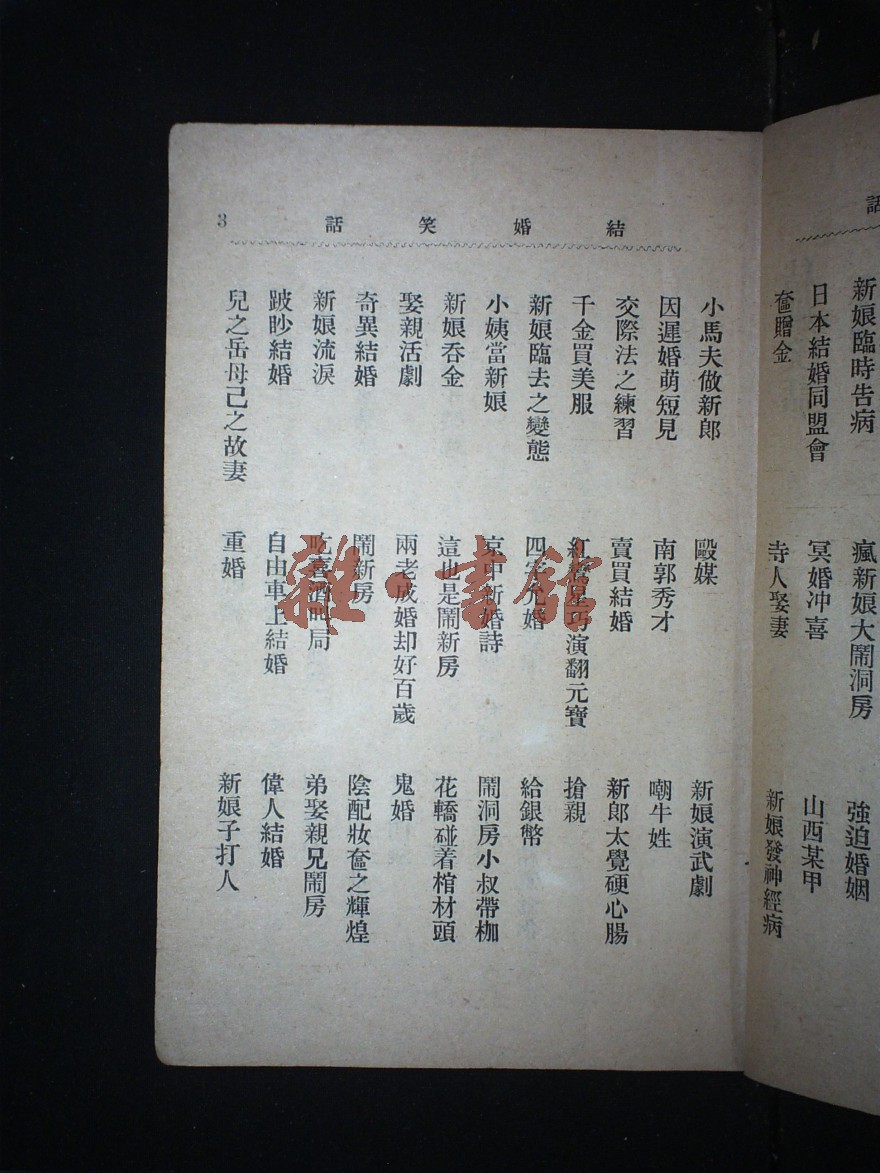 話
新娘臨時告病 瘋新娘大鬧洞房 強迫婚姻
日本結婚同盟會 冥婚冲喜 山西某甲
奩贈金 寺人娶妻 新娘發神經病
結婚笑話 3
小馬夫做新郎 毆媒 新娘演武劇
因遲婚萌短見 南郭秀才 嘲牛姓
交際法之練習 賣買結婚 新郎太覺硬心腸
千金買美服 紅鸞星巧演翻元寶 搶親
新娘臨去之變態 四允婚 給銀幣
小姨當新娘 京中新婚詩 鬧洞房小叔帶枷
新娘吞金 這也是鬧新房 花轎碰着棺材頭
娶親活劇 兩老成婚却好百歲 鬼婚
奇異結婚 鬧新房 陰配妝奩之輝煌
新娘流淚 吃喜酒局 弟娶親兄鬧房
跛眇結婚 自由車上結婚 偉人結婚
兒之岳母己之故妻 重婚 新娘子打人
雜·書館